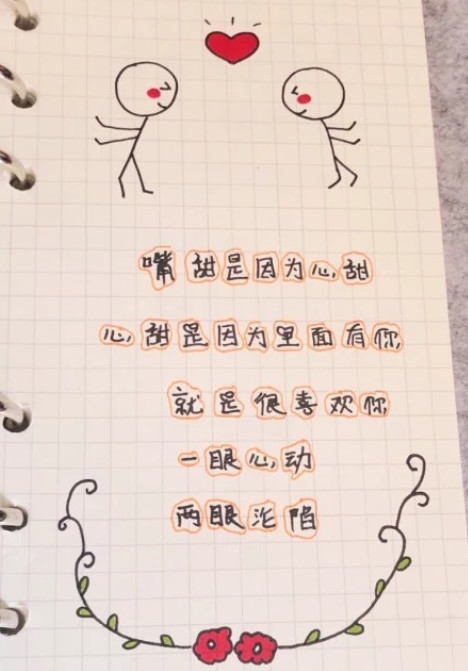 嘴甜是因为心甜
心甜是因为里面有你
就是很喜欢你
一眼心动
两眼沦陷